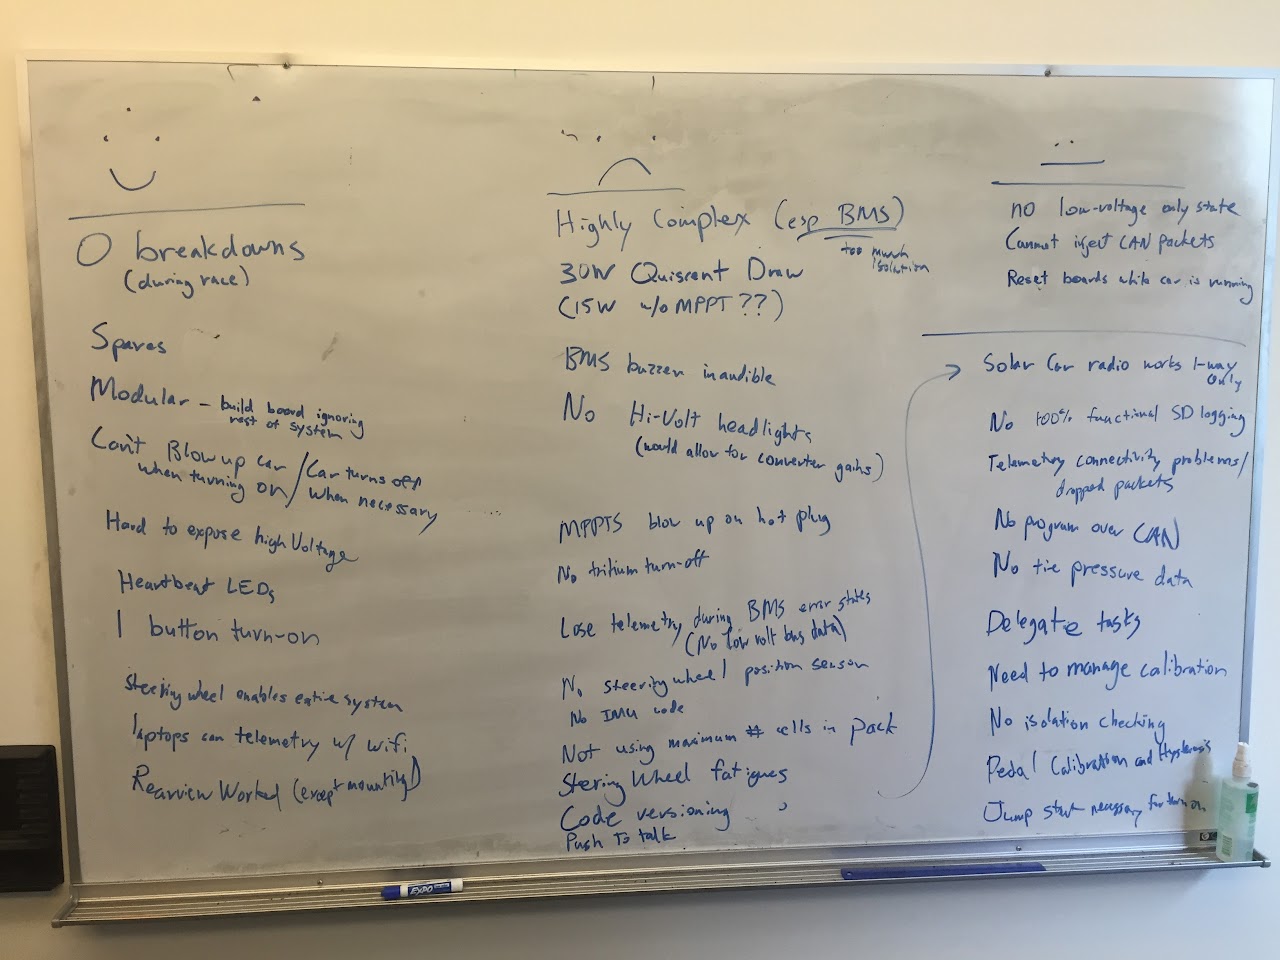 0 breakdowns
(during race)
Spares
Modular - build board ignoring
rest of system
Can't Blow up car
when turning on / Car turns off
when necessary
Hard to expose high Voltage
Heartbeat LEDs
1 button turn-on
Steering wheel enables entire system
laptops can telemetry w/ wifi
Rearview Worked (except mounting)
Highly Complex (esp BMS)
too much
isolation
30W Quiscent Draw
(15W w/o MPPT??)
BMS buzzer inaudible
No Hi-Volt headlights
(would allow for converter gains)
MPPTS blow up on hot plug
No tritium turn-off
Lose telemetry during BMS error states
(No low volt bus data)
No steering wheel position sensor
No IMU code
Not using maximum # cells in pack
Steering Wheel fatigues
Code versioning
Push To talk
no low-voltage only state
Cannot inject CAN packets
Reset boards while car is running
Solar Car radio works 1-way
only
No 100% functional SD logging
Telemetry connectivity problems/
dropped packets
No program over CAN
No tire pressure data
Delegate tasks
Need to manage calibration
No isolation checking
Pedal Calibration and Hysteresis
Jump start necessary for turn on
EXPO